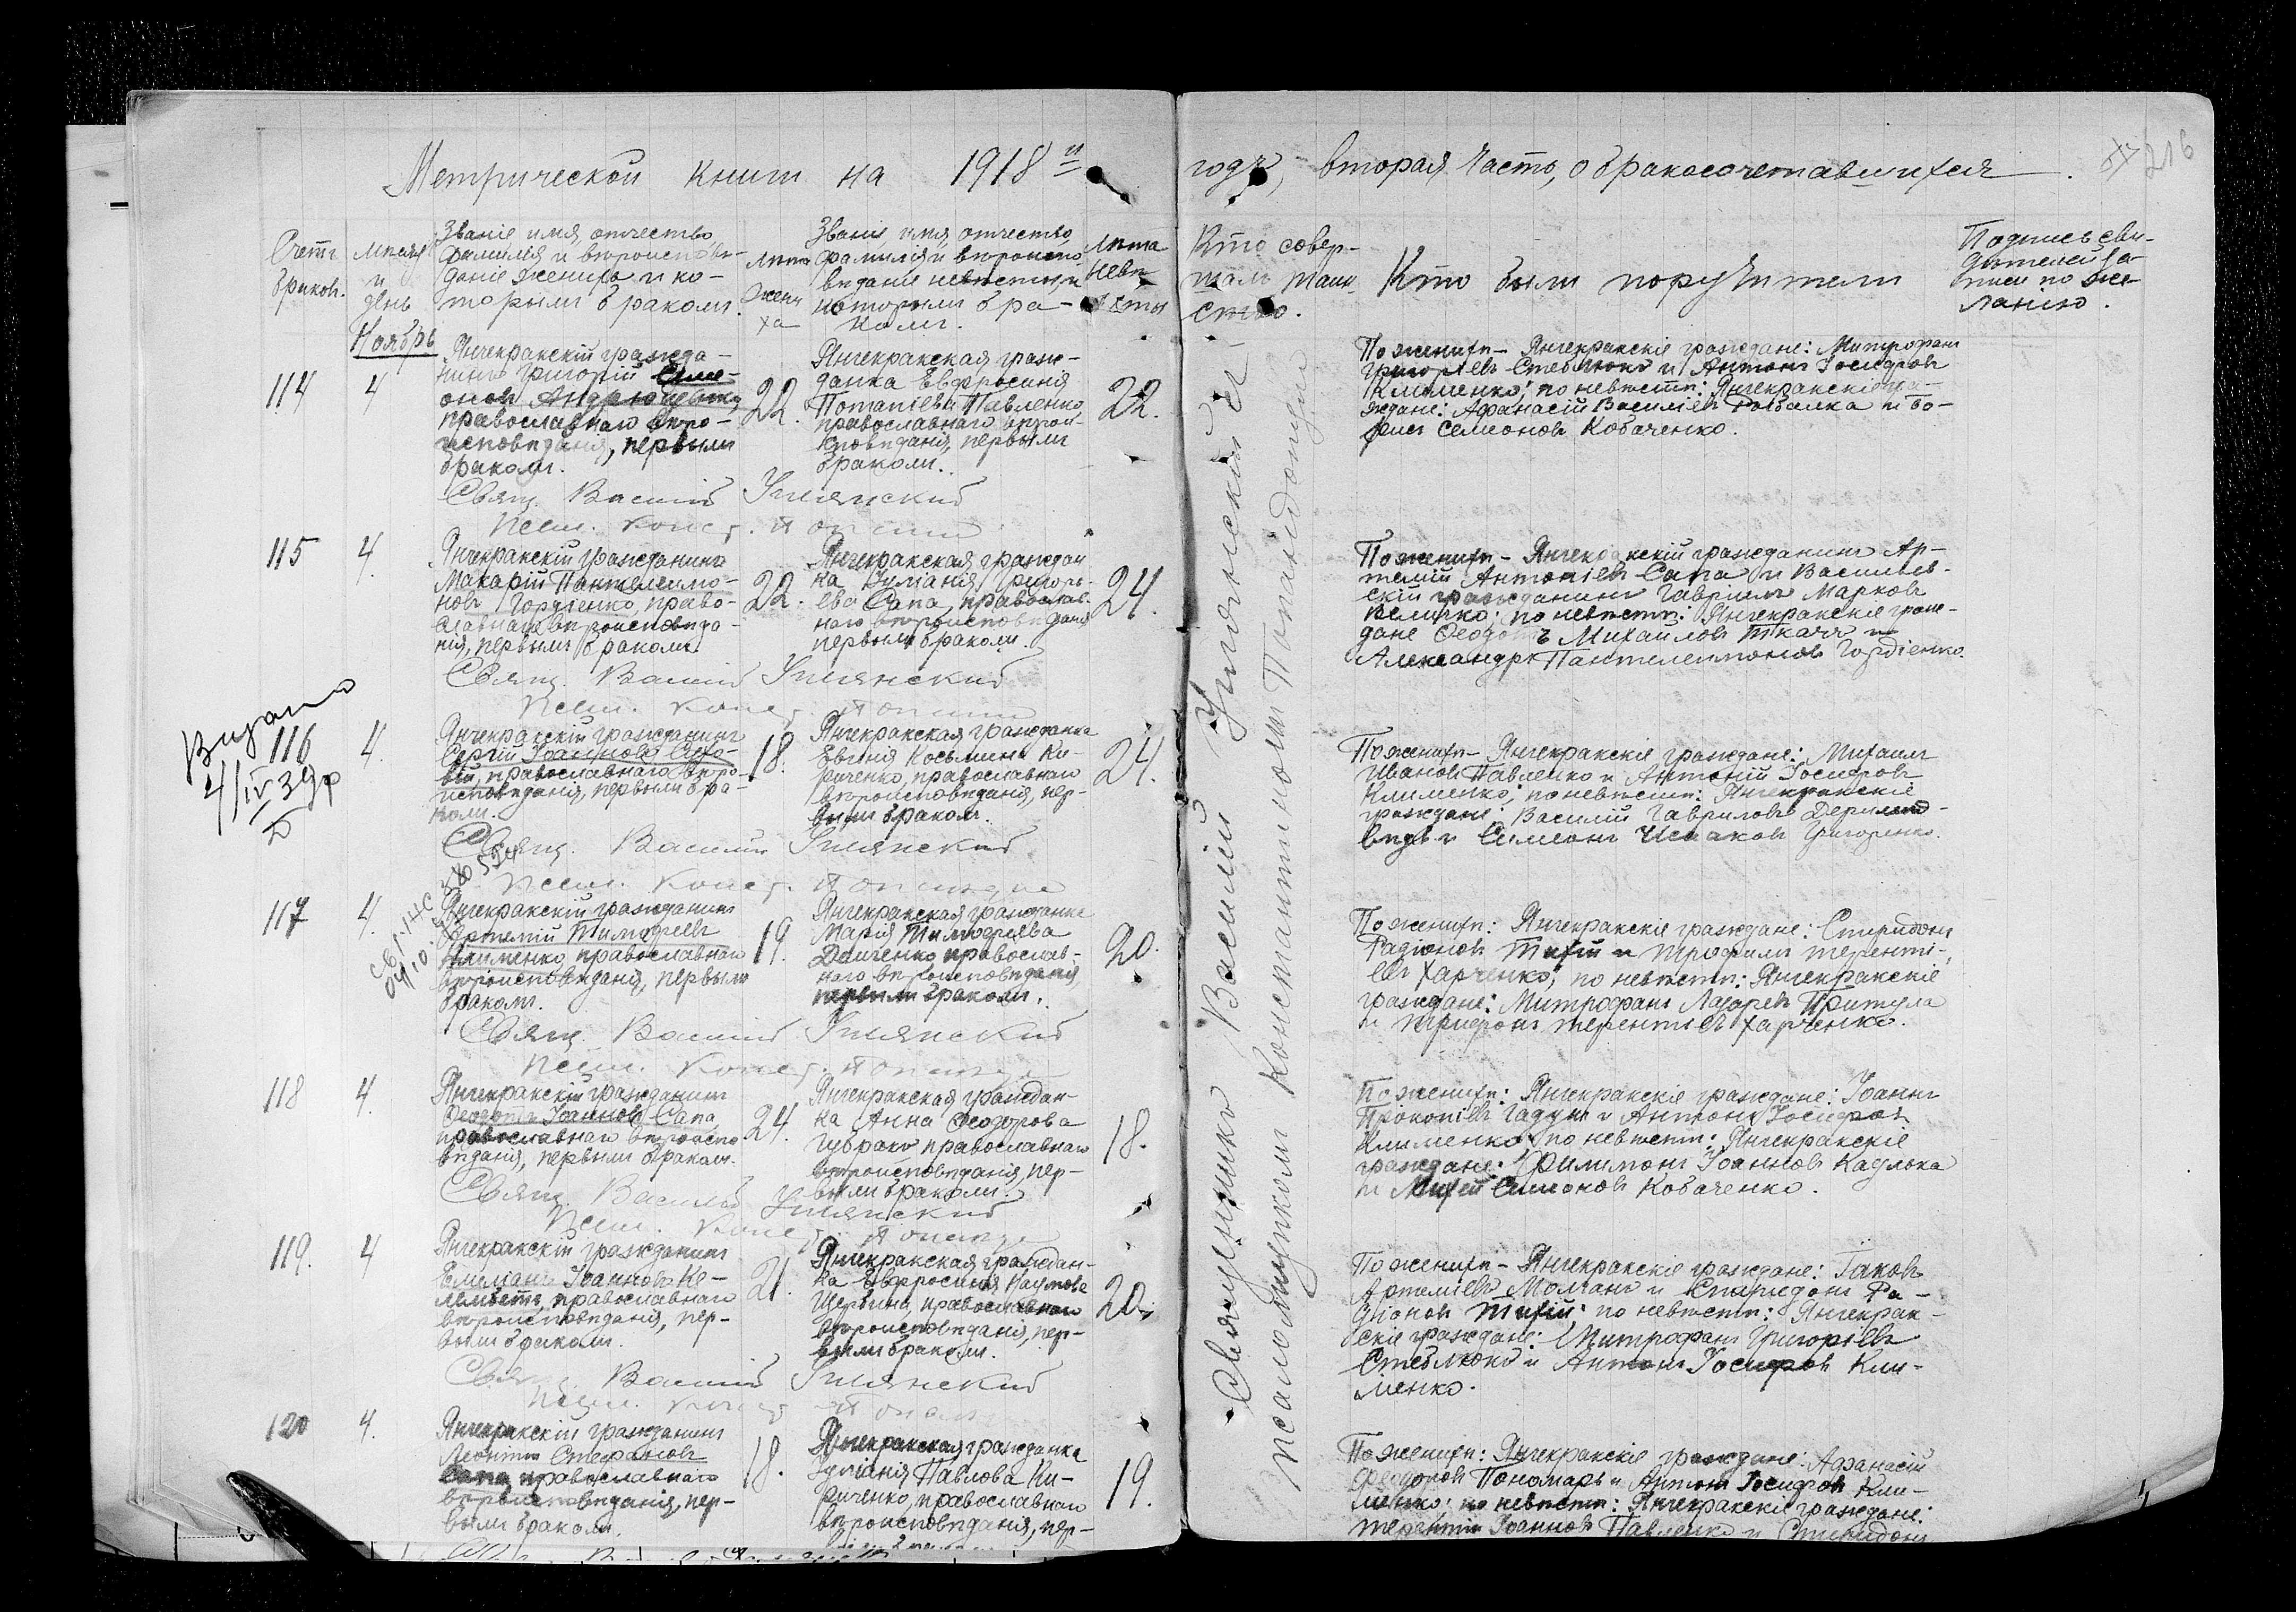 Метрической книги на 1918й
годъ, вторая часть, о бракосочетавшихся.
216
Счетъ
браковъ.
Мѣсяцъ
и
день
Званіе имя, отчество,
фамилія и вѣроисповѣ-
даніе жениха и ко-
торымъ бракомъ.
лѣта
жени
ха
Званіе, имя, отчество,
фамилія и вѣроиспо-
вѣданіе невѣсты и
которымъ бра-
комъ.
лѣта
невѣ
сты
Кто совер-
шалъ таин-
ство.
Кто были поручители
Подпись сви-
дѣтелей за-
писи по же-
ланію.
Ноябрь
114
4
Янчекракскій гражда-
нинъ Григорій Симе-
оновъ Андрющенко,
православнаго вѣро-
исповѣданія, первымъ
бракомъ.
22.
Янчекракская граж-
данка Евфросинія
Потапіева Павленко,
православнаго вѣрои-
сповѣданія, первымъ
бракомъ.
22.
По женихѣ - Янчекракскіе граждане: Митрофанъ
Григоріевъ Стеблюкъ и Антонъ Іосифовъ
Клименко; по невѣстѣ: Янчекракскіе гра-
ждане: Афанасій Василіевъ Рыбалка и Бо-
рисъ Семіоновъ Кобаченко.
Свящ. Василій Уманскій
Псал. Конст.
115
4.
Янчекракскій гражданинъ
Макарій Пантелеимо-
новъ Гордіенко, право-
славнаго вѣроисповѣда-
нія, первымъ бракомъ.
22.
Янчекракская граждан
ка Іуліанія Григорь-
ева Сапа, православ-
наго вѣроисповѣданія
первымъ бракомъ.
24.
По женихѣ - Янчекракскій гражданинъ Ар-
темій Антоніевъ Сапа и Васильев-
скій гражданинъ Гавріилъ Марковъ
Величко; по невѣстѣ: Янчекракскіе граж-
дане Феодотъ Михаиловъ Ткачъ и
Александръ Пантелеимоновъ Гордіенко.
Свящ. Василій Уманскій
Псал. Конст.
Видано
116
4.
Янчекракскій гражданинъ
Сергій Іоанновъ
православнаго вѣро-
исповѣданія, первымъ бра-
комъ.
18.
Янчекракская гражданка
Евгенія Косьмина Ки-
риченко, православнаго
вѣроисповѣданія, пер-
вымъ бракомъ.
24.
По женихѣ - Янчекракскіе граждане: Михаилъ
Ивановъ Павленко и Антоній Іосифовъ
Клименко; по невѣстѣ: Янчекракскіе
граждане: Василій Гавриловъ
и Симеонъ Исааковъ Григоренко.
Свящ. Василій Уманскій
Псал. Конст.
117
4.
Янчекракскій гражданинъ
Артемій Тимофеевъ
Клименко, православнаго
вѣроисповѣданія, первымъ
бракомъ.
19.
Янчекракская гражданка
Марія Тимофеева
Демченко, православ-
наго вѣроисповѣданія
первымъ бракомъ.
20.
По женихѣ: Янчекракскіе граждане: Спиридонъ
Радіоновъ Тихій и Трофимъ Теренті-
евъ Харченко; по невѣстѣ: Янчекракскіе
граждане: Митрофанъ Лазаревъ Притула
и Трифонъ Терентіевъ Харченко.
Свящ. Василій Уманскій
Псал. Конст.
118
4.
Янчекракскій гражданинъ
Феодотъ Іоанновъ Сапа
православнаго вѣроиспо
вѣданія, первымъ бракомъ.
24.
Янчекракская граждан-
ка Анна Феодорова
православнаго
вѣроисповѣданія, пер-
вымъ бракомъ.
18.
По женихѣ: Янчекракскіе граждане: Іоаннъ
Прокопіевъ и Антонъ Іосифовъ
Клименко; по невѣстѣ: Янчекракскіе
граждане: Филимонъ Іоанновъ Кадлюка
и Михей Симоновъ Кобаченко.
Свящ. Василій Уманскій
Псал. Конст.
119.
4
Янчекракскій гражданинъ
Емиліанъ Іоанновъ Ке-
православнаго
вѣроисповѣданія, пер-
вымъ бракомъ.
21.
Янчекракская граждан-
ка Евфросинія Наумова
Щербина, православнаго
вѣроисповѣданія, пер-
вымъ бракомъ.
20.
По женихѣ - Янчекракскіе граждане: Іаковъ
Артеміевъ и Спиридонъ Ра-
діоновъ Тихій; по невѣстѣ: Янчекрак-
скіе граждане: Митрофанъ Григоріевъ
Стеблюкъ и Антонъ Іосифовъ Кли-
менко.
Свящ. Василій Уманскій
Псал.
120
4.
Янчекракскій гражданинъ
Леонтій Стефановъ
Сапа, православнаго
вѣроисповѣданія, пер-
вымъ бракомъ.
18.
Янчекракская гражданка
Іуліанія Павлова Ки-
риченко, православнаго
вѣроисповѣданія, пер-
19.
По женихѣ: Янчекракскіе граждане: Афанасій
Феодоровъ Пономарь и Антонъ Іосифовъ Кли-
менко; по невѣстѣ: Янчекракскіе граждане:
Терентій Іоанновъ Павленко и Спиридонъ
Священникъ Василій Уманскій съ
псаломщикомъ Константиномъ